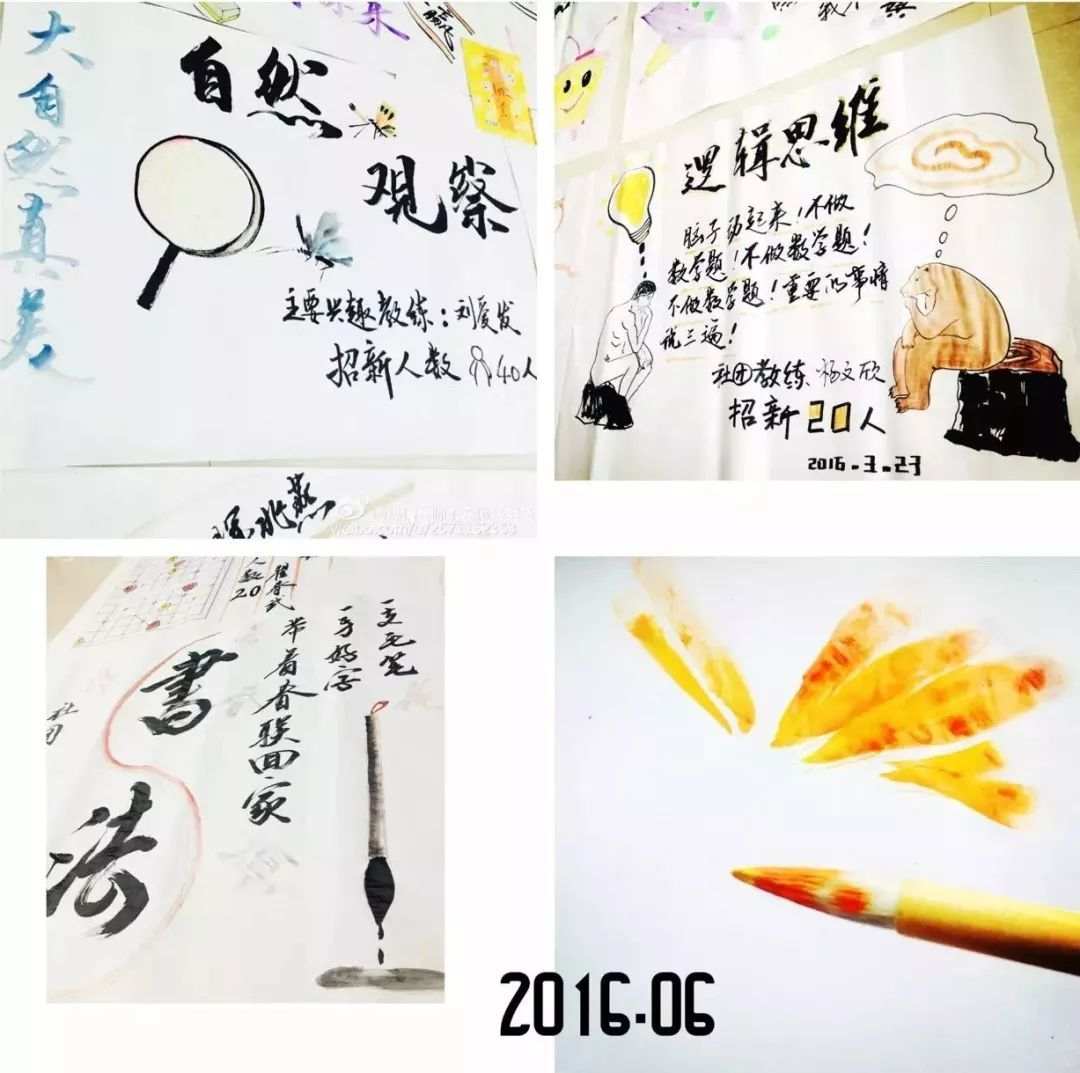 大自然真美
自然
观察
主要兴趣教练：刘爱发
招新人数 40人
逻辑思维
脑子动起来！不做
数学题！不做数学题！
不做数学题！重要的事情
说三遍！
社团教练 杨文欣
招新20人
2016.3.23
書
法
社团
带着春联回家
一手好字
一支毛笔
2016.06